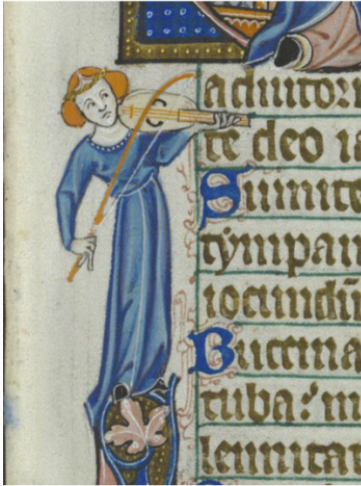 adiutor
te deo i
Sumite
tympan
iocundū
Buccina
tuba: in
lennitat